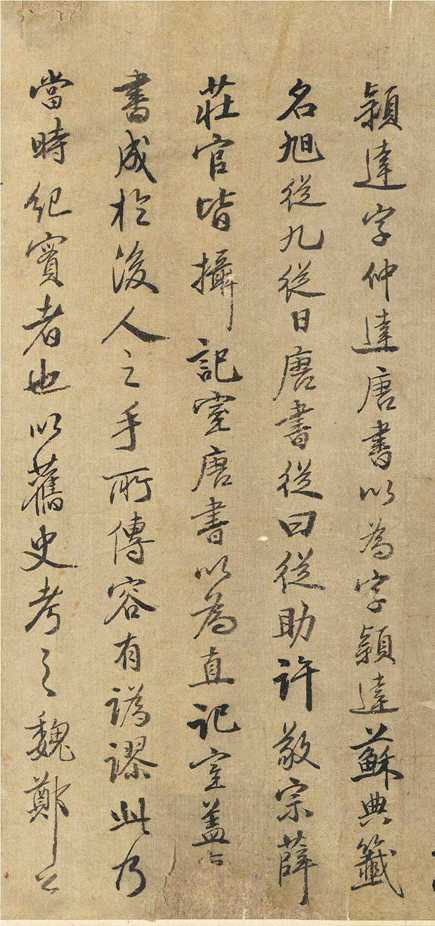 穎達字仲達唐書以為字穎達蘇典籤
名旭從九從日唐書從曰從助許敬宗薛
莊官皆攝記室唐書以為直記室蓋
書成於後人之手所傳容有譌謬此乃
當時紀實者也以舊史考之魏鄭公